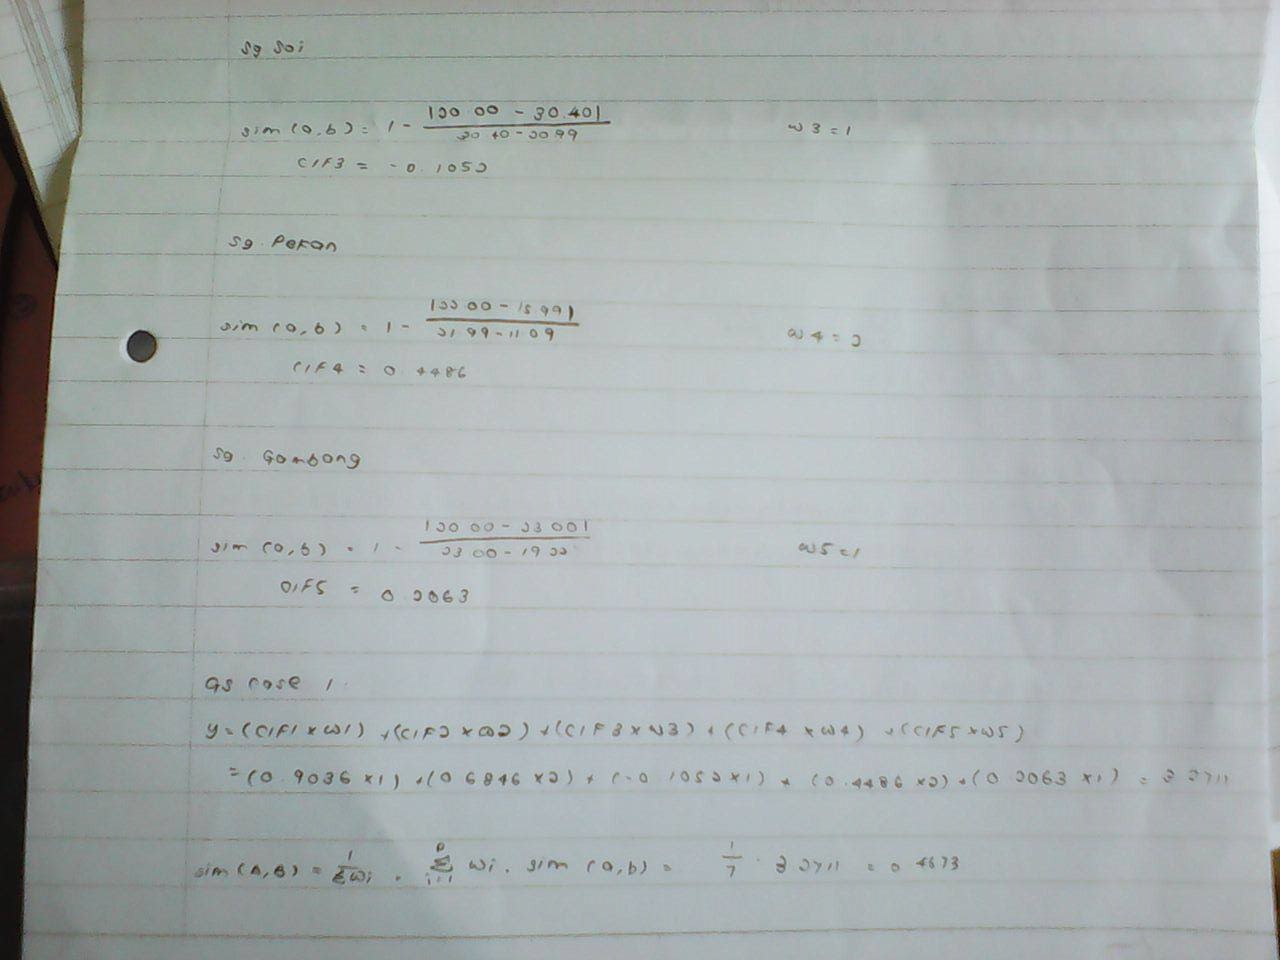 Sg Soi
sim (a,b) = 1 - |20.00 - 30.40| / 30.40 - 20.99
w3 = 1
CIF3 = -0.1052
Sg. Pekan
sim (a,b) = 1 - |22.00 - 15.99| / 21.99 - 11.09
w4 = 2
CIF4 = 0.4486
Sg. Gambang
sim (a,b) = 1 - |20.00 - 23.00| / 23.00 - 19.22
w5 = 1
CIF5 = 0.2063
GS case 1.
y = (CIF1 x w1) + (CIF2 x w2) + (CIF3 x w3) + (CIF4 x w4) + (CIF5 x w5)
= (0.9036 x1) + (0.6846 x2) + (-0.1052 x1) + (0.4486 x2) + (0.2063 x1) = 3.2711
sim (A,B) = 1/Σwi . Σ p i=1 wi. sim (a,b) = 1/7 . 3.2711 = 0.4673